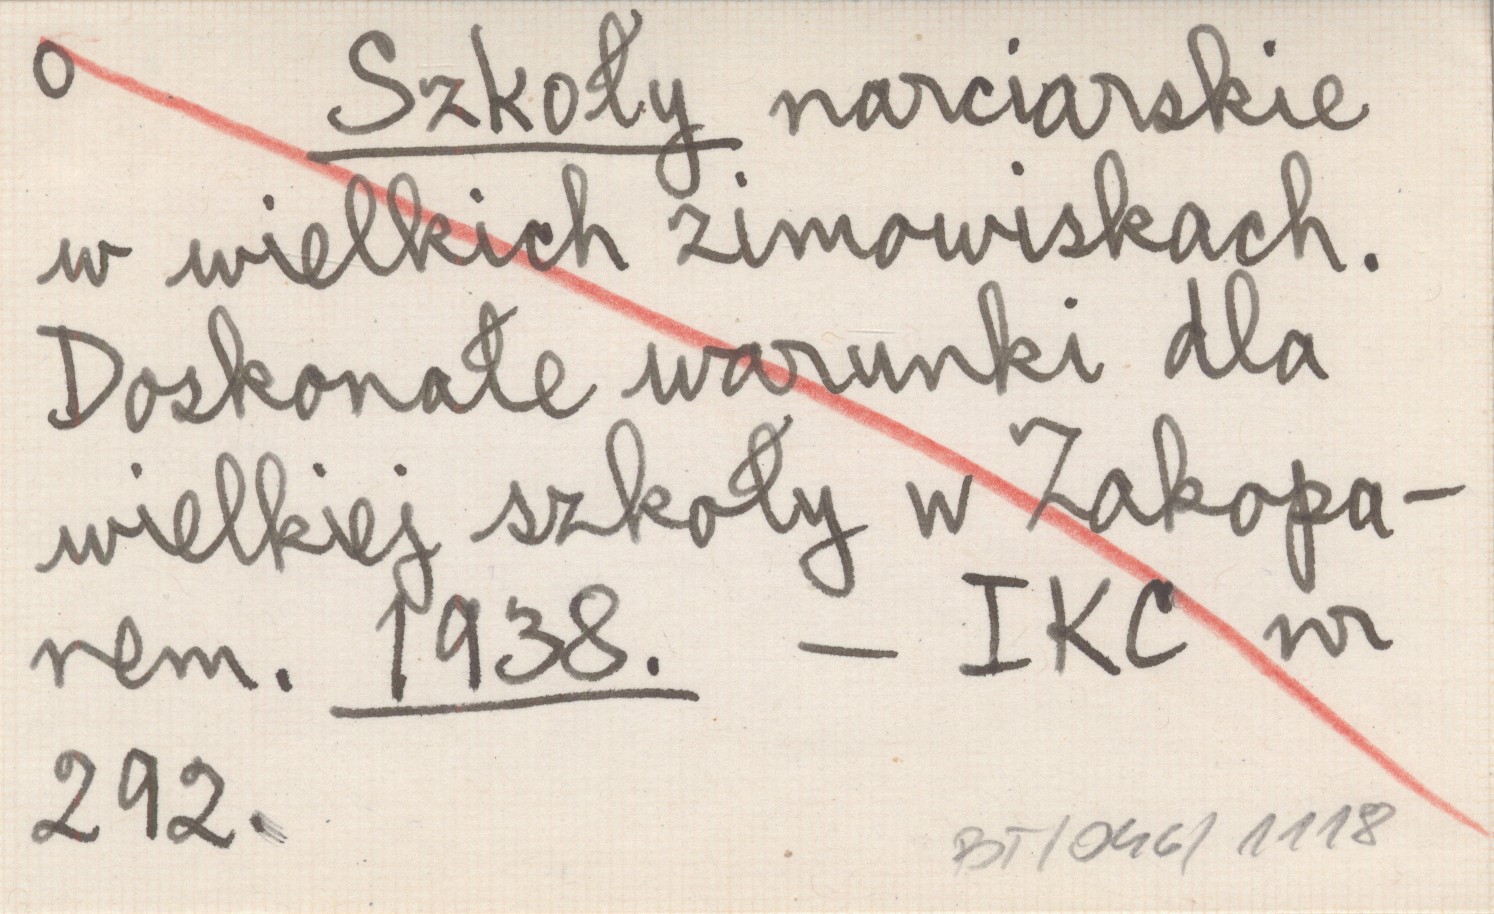 o Szkoły narciarskie
w wielkich zimowiskach.
Doskonałe warunki dla
wielkiej szkoły w Zakopa-
nem. 1938. — IKC nr
292.
BT/046/1118